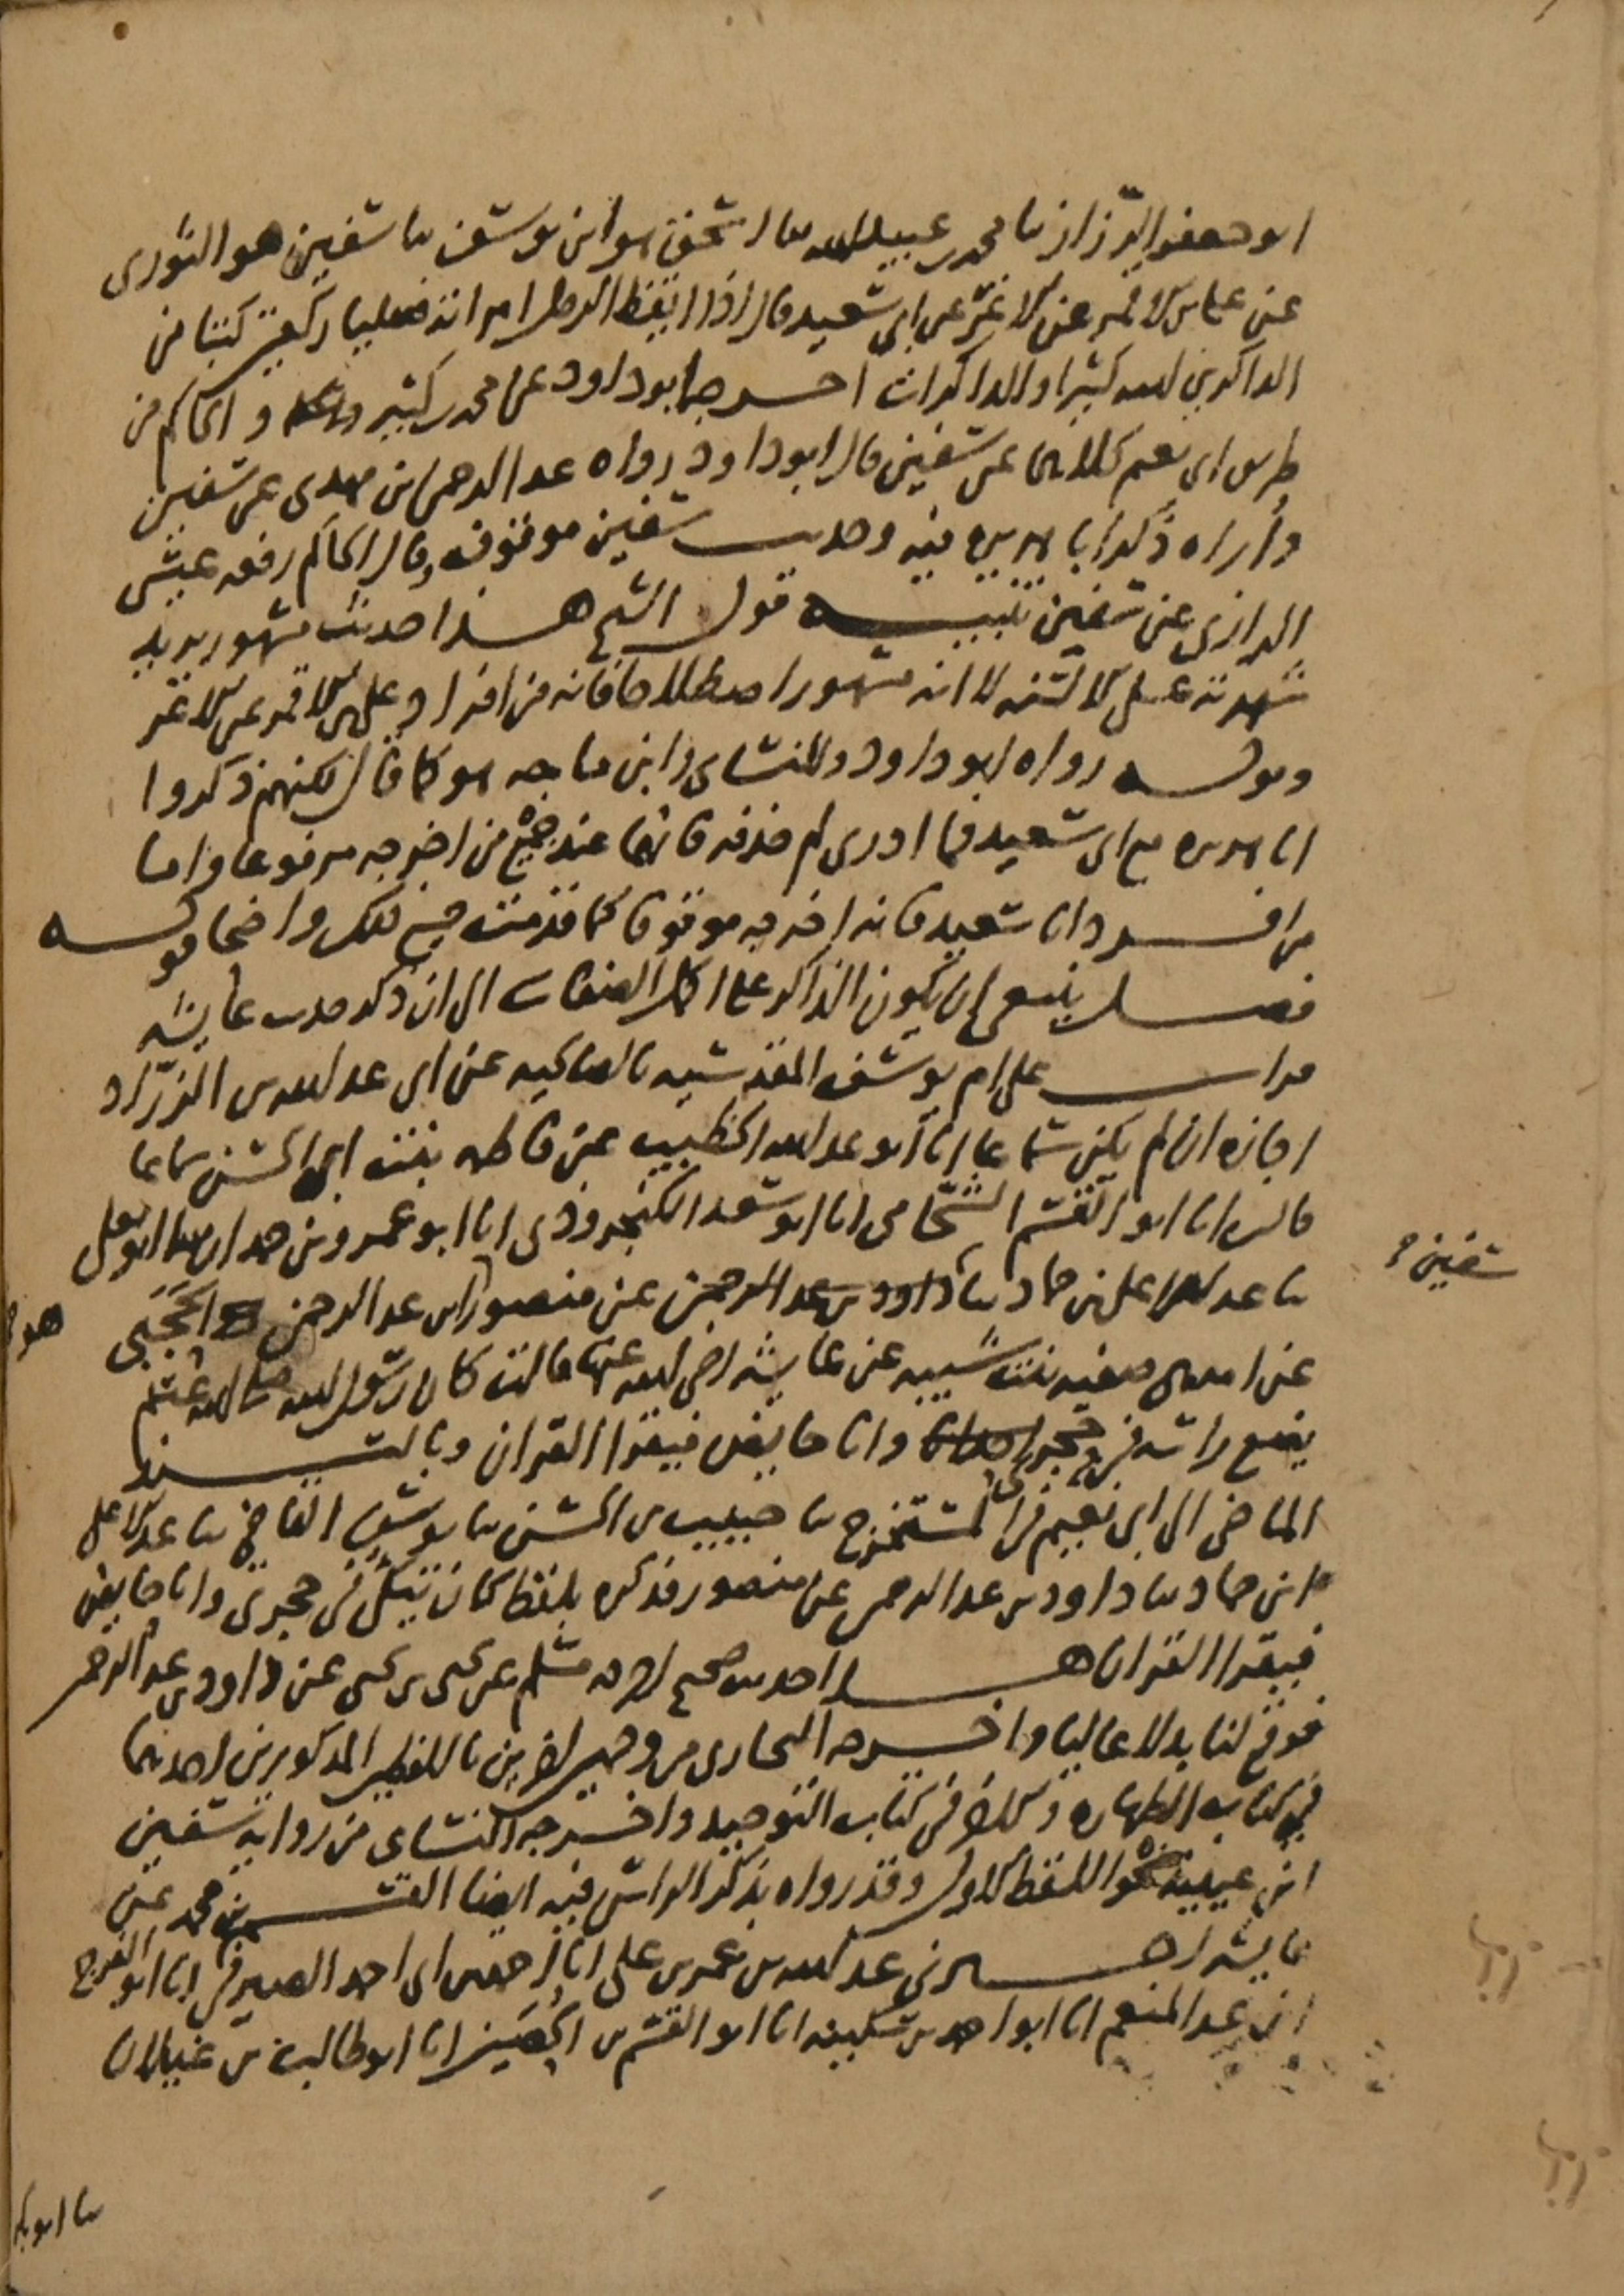 ابو جعفر الرزاز نا محمد بن عبيد الله نا اسحق هو ابن يوسف نا سفين هو الثوري
عن علي بن الاقمر عن الاغر عن ابي سعيد قال اذا ايقظ الرجل امراته فصليا ركعتين كتبا من
الذاكرين الله كثيرا والذاكرات اخرجه ابو داود عن محمد بن كثير والحاكم من
طريق ابي نعيم كلاهما عن سفين قال ابو داود رواه عبد الرحمن بن مهدي عن سفين
واراه ذكر ابا هريرة فيه وحديث سفين موقوف وقال الحاكم رفعه عيسى
الرازي عن سفين تنبيه قول الشيخ هذا حديث مشهور يريد
شهرته على الالسنة لا انه مشهور اصطلاحا فانه من افراد علي بن الاقمر عن الاغر
وقوله رواه ابو داود والنساي وابن ماجه هو كما قال لكنهم ذكروا
ابا هريرة مع ابي سعيد فما ادري لم حذفه فانهما عند جميع من اخرجه مرفوعا واما
من افرد ابا سعيد فانه اخرجه موقوفا كما قدمته جميع ذلك واضحا قوله
فصل ينبغي ان يكون الذاكر على اكمل الصفات الى ان ذكر حديث عايشة
قرات على ام يوسف المقدسية بالصالحية عن ابي عبد الله بن الزراد
اجازة ان لم يكن سماعا انا ابو عبد الله الخطيب عن فاطمة بنت ابي الحسن سماعا
قالت انا ابو القسم الشحامي انا ابو سعد الكنجرودي انا ابو عمرو بن حمدان نا ابو يعلى
نا عبد الاعلى بن حماد نا داود بن عبد الرحمن عن منصور ابن عبد الرحمن الحجبي
عن امه هي صفية بنت شيبة عن عايشة رضي الله عنها قالت كان رسول الله صلى الله عليه وسلم
يضع راسه في حجري وانا حايض فيقرا القران وبالسند
الماضي الى ابي نعيم في المستخرج نا حبيب بن الحسن نا يوسف القاضي نا عبد الاعلى
ابن حماد نا داود بن عبد الرحمن عن منصور فذكره بلفظ كان يتكئ في حجري وانا حايض
فيقرا القران هذا حديث صحيح اخرجه مسلم عن يحيى بن يحيى عن داود بن عبد الرحمن
فوقع لنا بدلا عاليا واخرجه البخاري من وجهين اخرين باللفظين المذكورين احدهما
في كتاب الطهارة والاخر في كتاب التوحيد واخرجه النساي من رواية سفين
ابن عيينة نحو اللفظ الاول وقد رواه بذكر الراس فيه ايضا القسم بن محمد عن
عايشة اخبرني عبد الله بن عمر بن علي انا احمد بن ابي احمد الصيرفي انا ابو الفرج
ابن عبد المنعم انا ابو احمد بن سكينة انا ابو القسم بن الحصين انا ابو طالب بن غيلان
سفين
هو
نا ابو بكر